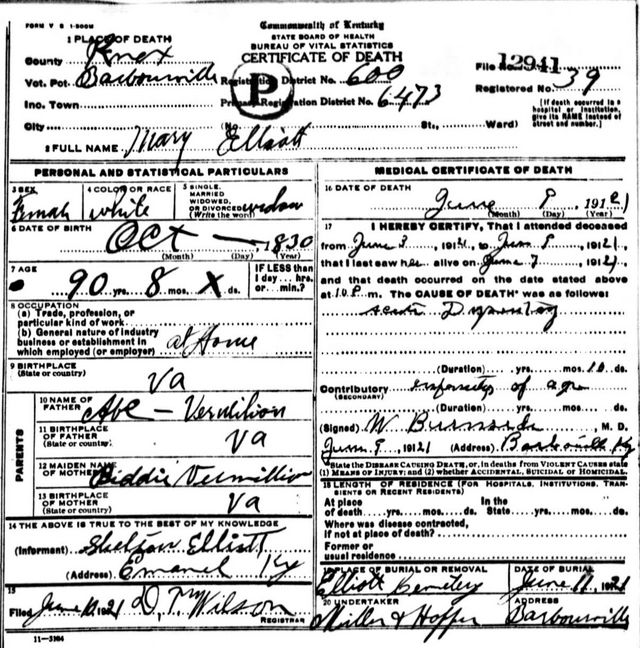 FORM V S 1-500M
Commonwealth of Kentucky
STATE BOARD OF HEALTH
BUREAU OF VITAL STATISTICS
CERTIFICATE OF DEATH
1 PLACE OF DEATH
County Knox
Vot. Pct. Barbourville Registration District No. 600
File No. 12941
Registered No. 39
Inc. Town Primary Registration District No. 6473
P
[If death occurred in a hospital or institution, give its NAME instead of street and number.]
City (No. St., Ward)
2 FULL NAME Mary Elliott
PERSONAL AND STATISTICAL PARTICULARS
3 SEX Female
4 COLOR OR RACE white
5 SINGLE, MARRIED WIDOWED, OR DIVORCED (Write the word) widow
6 DATE OF BIRTH Oct — 1830
(Month) (Day) (Year)
7 AGE 90 yrs. 8 mos. X ds.
IF LESS than 1 day... hrs. or... min.?
8 OCCUPATION
(a) Trade, profession, or particular kind of work
(b) General nature of industry business or establishment in which employed (or employer) at Home
9 BIRTHPLACE (State or country) Va
PARENTS
10 NAME OF FATHER Abe - Vermilion
11 BIRTHPLACE OF FATHER (State or country) Va
12 MAIDEN NAME OF MOTHER Biddie Vermillion
13 BIRTHPLACE OF MOTHER (State or country) Va
14 THE ABOVE IS TRUE TO THE BEST OF MY KNOWLEDGE
(Informant) Shelton Elliott
(Address) Emanuel Ky
15
Filed June 1921 D. Wilson
REGISTRAR
11-3104
MEDICAL CERTIFICATE OF DEATH
16 DATE OF DEATH June 8 1921
(Month) (Day) (Year)
17 I HEREBY CERTIFY, That I attended deceased
from June 3 1921, to June 8, 1921,
that I last saw her alive on June 7, 1921,
and that death occurred on the date stated above
at 10 P m. The CAUSE OF DEATH* was as follows:
acute Dysentery
(Duration) yrs. mos. 10 ds.
Contributory (SECONDARY) infirmity of age
(Duration) yrs. mos. ds.
(Signed) W Burnside, M. D.
June 9 1921 (Address) Barbourville Ky
*State the DISEASE CAUSING DEATH, or, in deaths from VIOLENT CAUSES state (1) MEANS OF INJURY; and (2) whether ACCIDENTAL, SUICIDAL or HOMICIDAL.
18 LENGTH OF RESIDENCE (FOR HOSPITALS, INSTITUTIONS, TRANSIENTS OR RECENT RESIDENTS)
At place of death yrs. mos. ds. In the State yrs. mos. ds.
Where was disease contracted, if not at place of death?
Former or usual residence
19 PLACE OF BURIAL OR REMOVAL Elliott Cemetery
DATE OF BURIAL June 11, 1921
20 UNDERTAKER Miller & Hopper
ADDRESS Barbourville